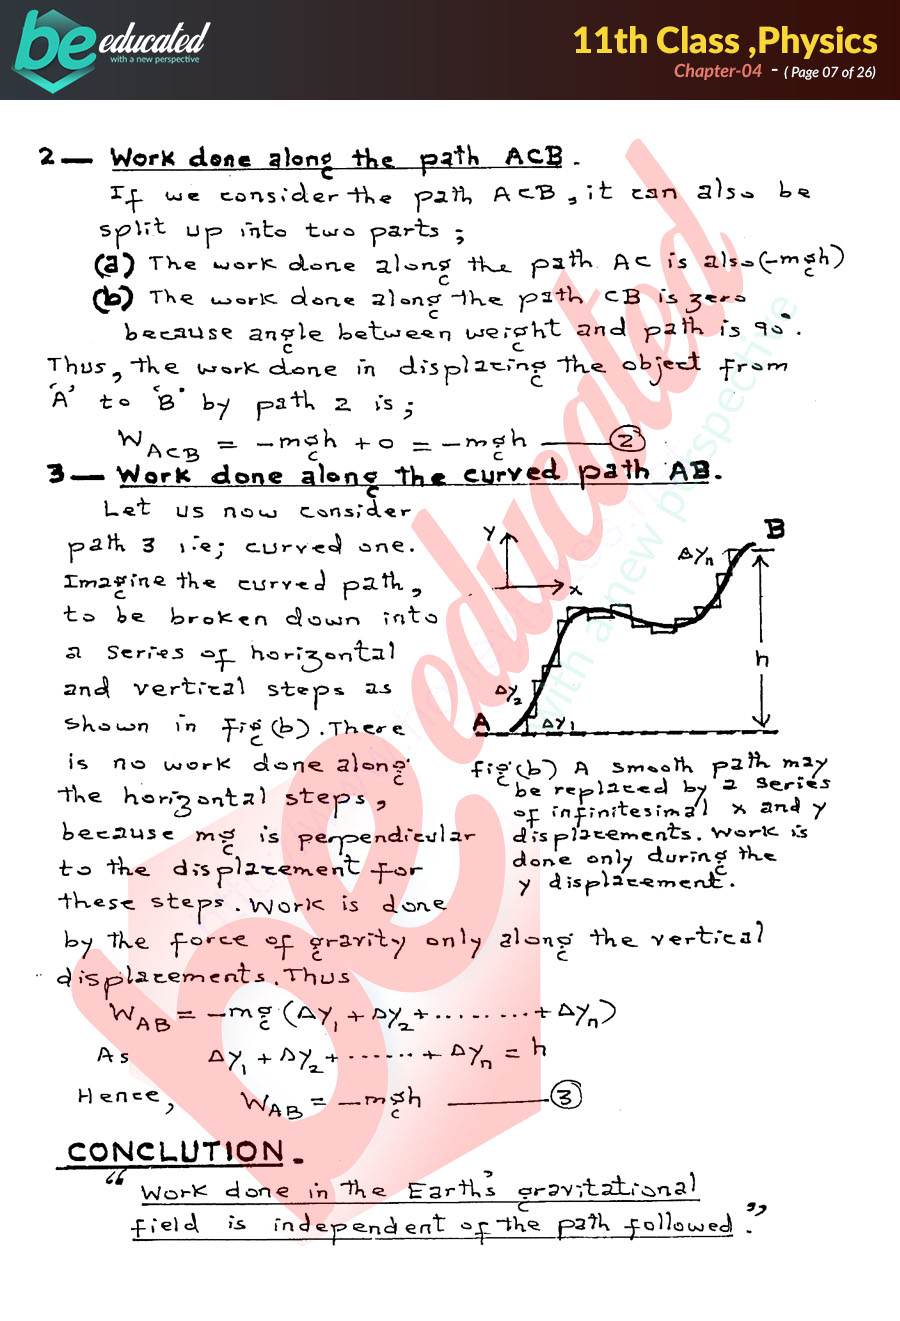 be educated
with a new perspective
11th Class ,Physics
Chapter-04 - ( Page 07 of 26)
2— Work done along the path ACB.
If we consider the path ACB, it can also be
split up into two parts ;
(a) The work done along the path AC is also (-mgh)
(b) The work done along the path CB is zero
because angle between weight and path is 90°.
Thus, the work done in displacing the object from
'A' to 'B' by path 2 is ;
W_ACB = -mgh + 0 = -mgh —— ②
3— Work done along the curved path AB.
Let us now consider
path 3 i.e; curved one.
Imagine the curved path,
to be broken down into
a series of horizontal
and vertical steps as
shown in fig(b). There
is no work done along
the horizontal steps,
because mg is perpendicular
to the displacement for
these steps. Work is done
by the force of gravity only along the vertical
displacements. Thus
Y
x
B
Δyn
h
Δy2
A
Δy1
fig(b) A smooth path may
be replaced by a series
of infinitesimal x and y
displacements. Work is
done only during the
y displacement.
W_AB = -mg (Δy1 + Δy2 + ........ + Δyn)
As Δy1 + Δy2 + ...... + Δyn = h
Hence, W_AB = -mgh —— ③
CONCLUTION.
"Work done in the Earth's gravitational
field is independent of the path followed."
be educated
with a new perspective